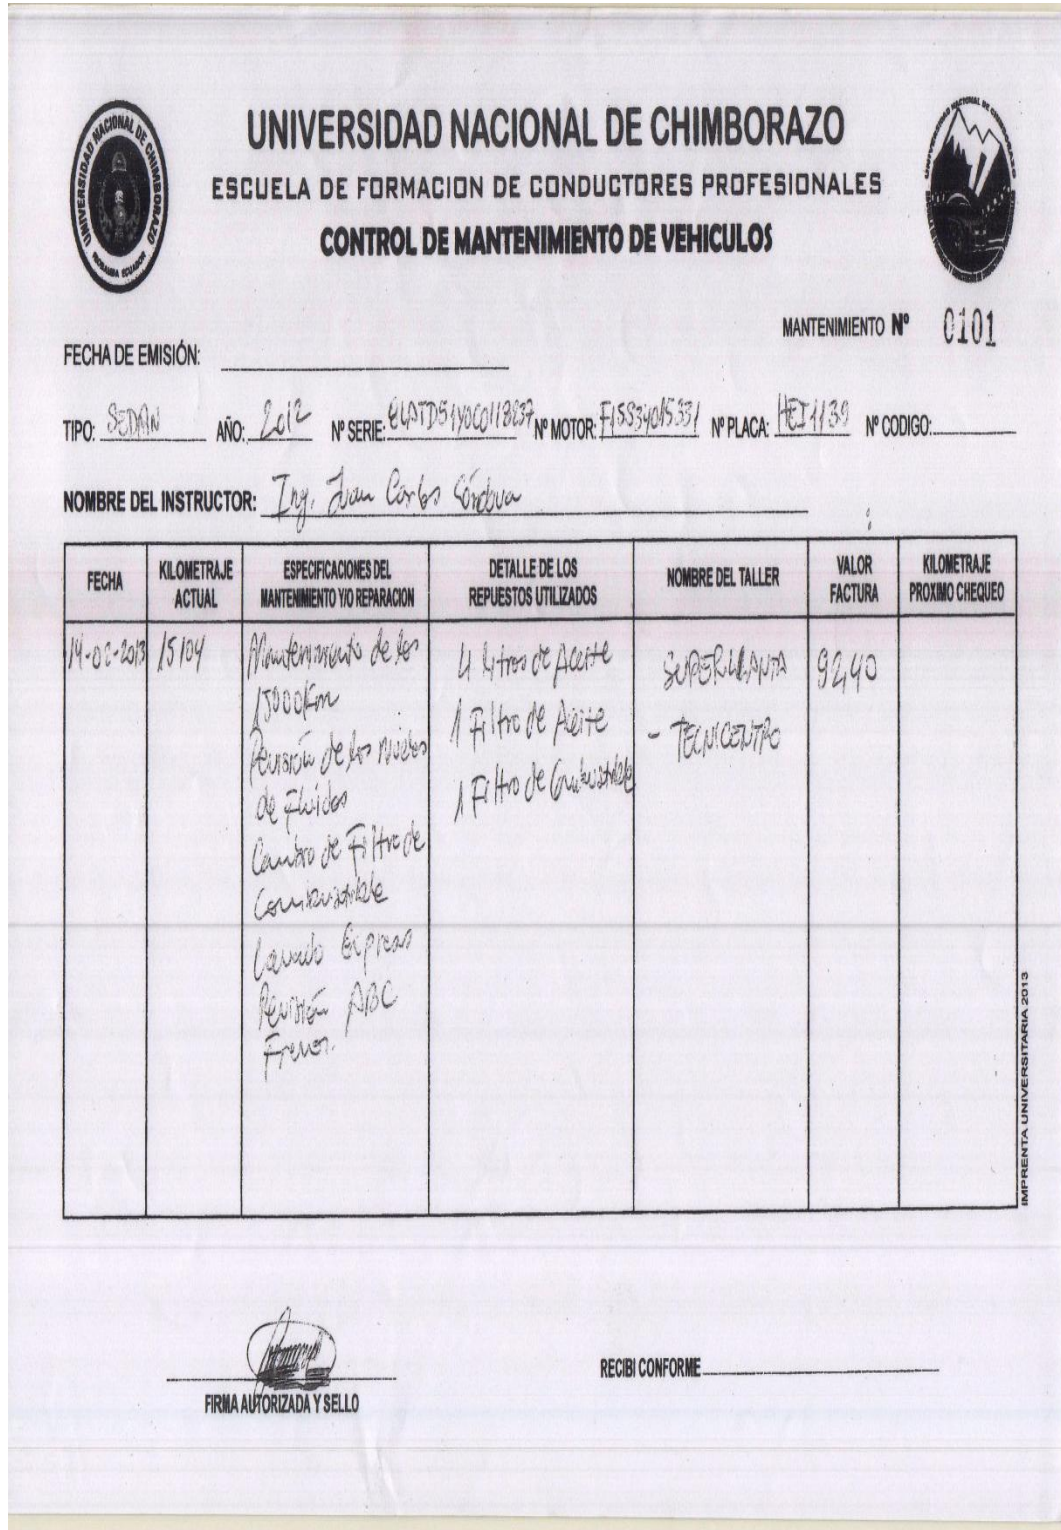 UNIVERSIDAD NACIONAL DE CHIMBORAZO
ESCUELA DE FORMACION DE CONDUCTORES PROFESIONALES
CONTROL DE MANTENIMIENTO DE VEHICULOS
UNIVERSIDAD NACIONAL DE CHIMBORAZO
MANTENIMIENTO Nº 0101
FECHA DE EMISIÓN:
TIPO: SEDAN AÑO: 2012 Nº SERIE: Nº MOTOR: Nº PLACA: HEI1139 Nº CODIGO:
NOMBRE DEL INSTRUCTOR: Ing. Juan Carlos Córdova
FECHA
KILOMETRAJE
ACTUAL
ESPECIFICACIONES DEL
MANTENIMIENTO Y/O REPARACION
DETALLE DE LOS
REPUESTOS UTILIZADOS
NOMBRE DEL TALLER
VALOR
FACTURA
KILOMETRAJE
PROXIMO CHEQUEO
15104
Mantenimiento de los
15000Km
Revisión de los niveles
de Fluidos
Cambio de Filtro de
Combustible
Lavado Express
Revisión ABC
Frenos.
4 litros de Aceite
1 Filtro de Aceite
1 Filtro de Combustible
SUPERLLANTA
- TECNICENTRO
92,40
IMPRENTA UNIVERSITARIA 2013
FIRMA AUTORIZADA Y SELLO
RECIBI CONFORME